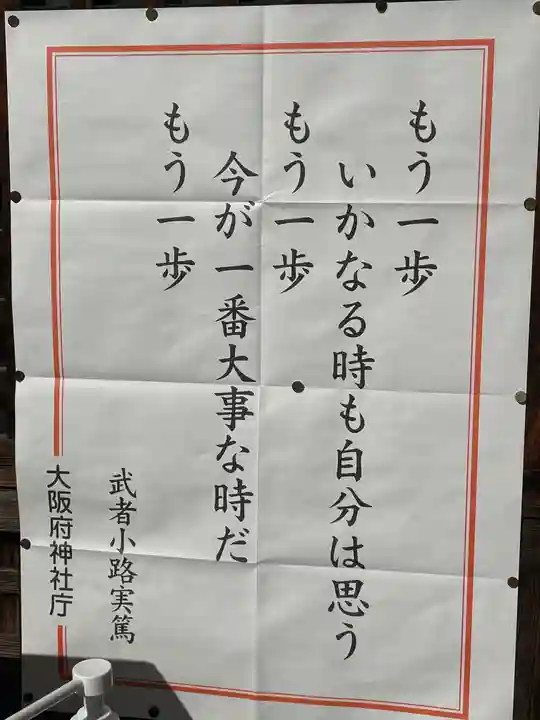 もう一歩
いかなる時も自分は思う
もう一歩
今が一番大事な時だ
もう一歩
武者小路実篤
大阪府神社庁